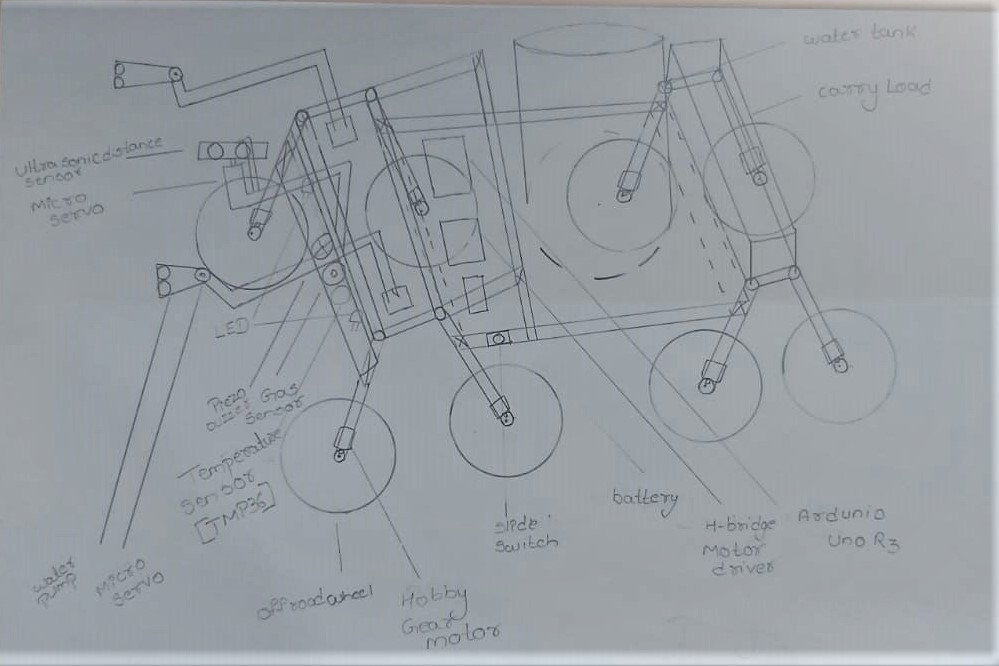 water tank
carry Load
Ultrasonic distance
sensor
MICRO
SERVO
LED
Piezo
buzzer
Gas
sensor
Temperature
sensor
[TMP36]
water
pump
MICRO
servo
offroadwheel
Hobby
Gear
motor
slide
switch
battery
H-bridge
Motor
driver
Ardunio
UNO R3